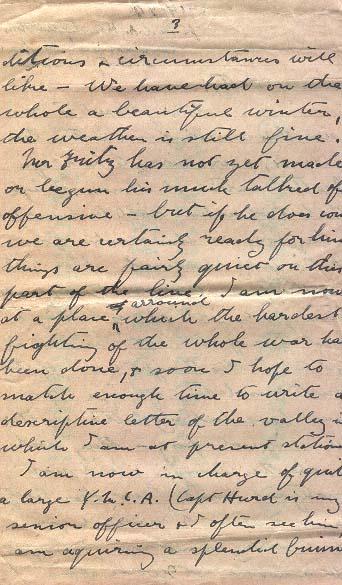 3
ditions & circumstances will
like – We have had on the
whole a beautiful winter,
the weather is still fine.
Mr Fritz has not yet made
or begun his much talked of
offensive – but if he does com
we are certainly ready for him
things are fairly quiet on this
part of the line. I am now
at a place arround which the hardest
fighting of the whole war ha
been done, & soon I hope to
match enough time to write a
descriptive letter of the valley in
which I am at present station
I am now in charge of quit
a large Y.M.C.A. (Capt Hurd is my
senior officer & I often see him
am aquiring a splendid